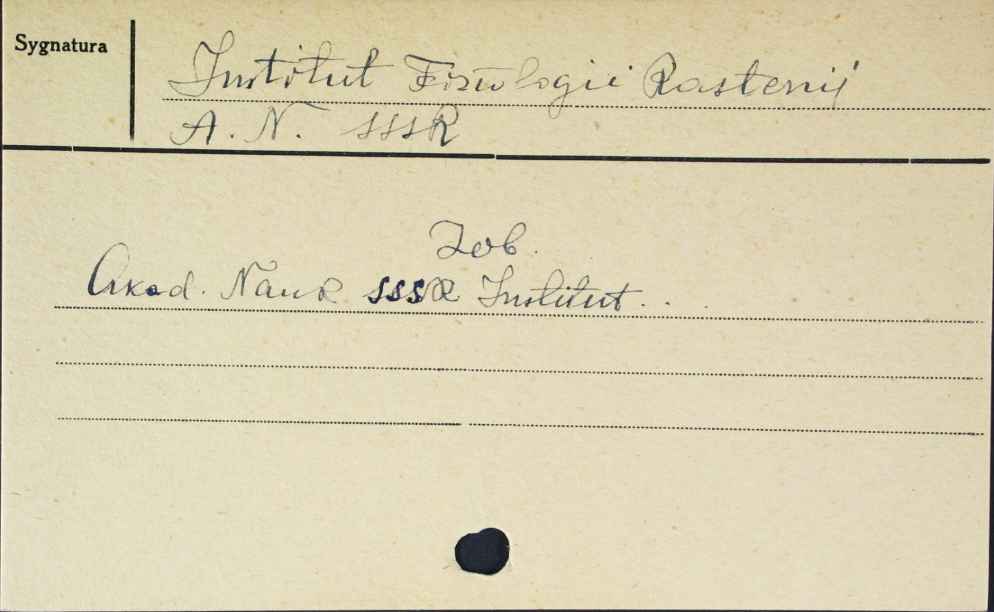 Sygnatura
Institut Fiziologii Rastenij
A. N. SSSR
Zob.
Akad. Nauk SSSR Institut. . .